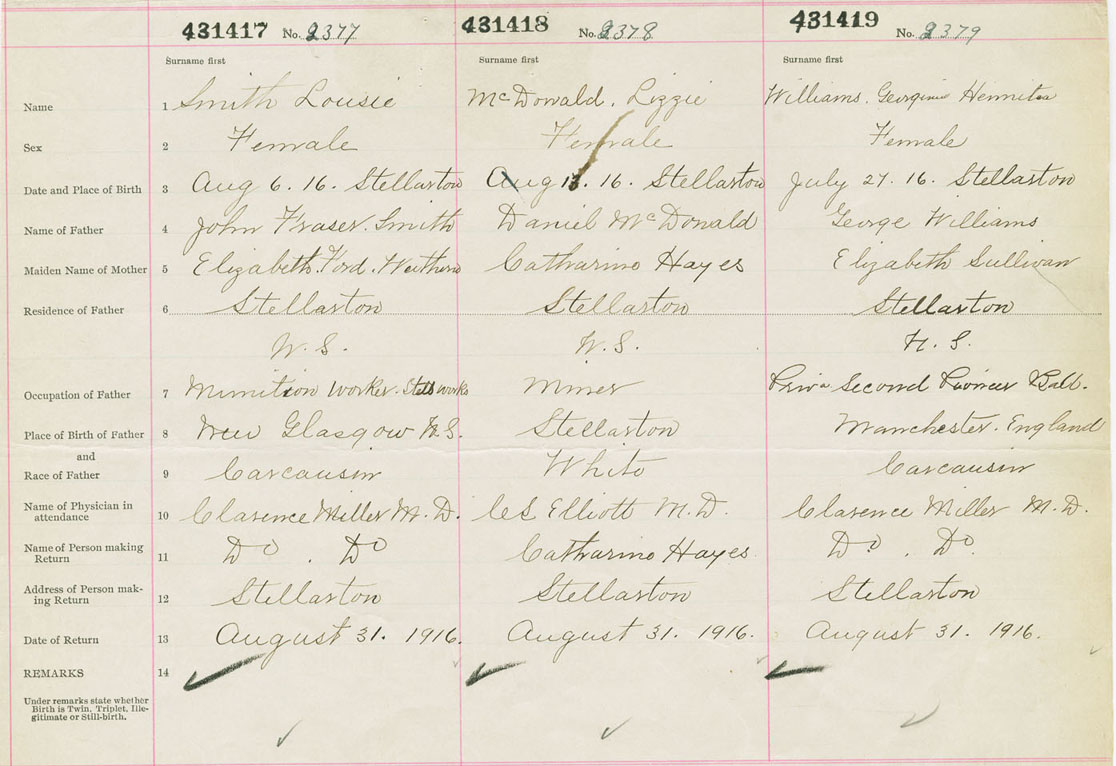 431417 No. 2377 431418 No. 2378 431419 No. 2379
Surname first Surname first Surname first
Name 1 Smith Lousie McDonald, Lizzie Williams. Georgina
Sex 2 Female Female Female
Date and Place of Birth 3 Aug 6. 16. Stellarton Aug 13. 16. Stellarton July 27. 16. Stellarton
Name of Father 4 John Fraser Smith Daniel McDonald George Williams
Maiden Name of Mother 5 Elizabeth Ford. Catharine Hayes Elizabeth Sullivan
Residence of Father 6 Stellarton Stellarton Stellarton
N.S. N.S. N.S.
Occupation of Father 7 Munition Worker. works Miner Second Pioneer Batt.
Place of Birth of Father 8 New Glasgow N.S. Stellarton Manchester. England
and
Race of Father 9 Carcausin White Carcausin
Name of Physician in
attendance 10 Clarence Miller M.D. Elliott M.D. Clarence Miller M.D.
Name of Person making
Return 11 Do . Do Catharine Hayes Do . Do.
Address of Person mak-
ing Return 12 Stellarton Stellarton Stellarton
Date of Return 13 August 31. 1916. August 31. 1916. August 31. 1916.
REMARKS 14
Under remarks state whether
Birth is Twin, Triplet, Ille-
gitimate or Still-birth.